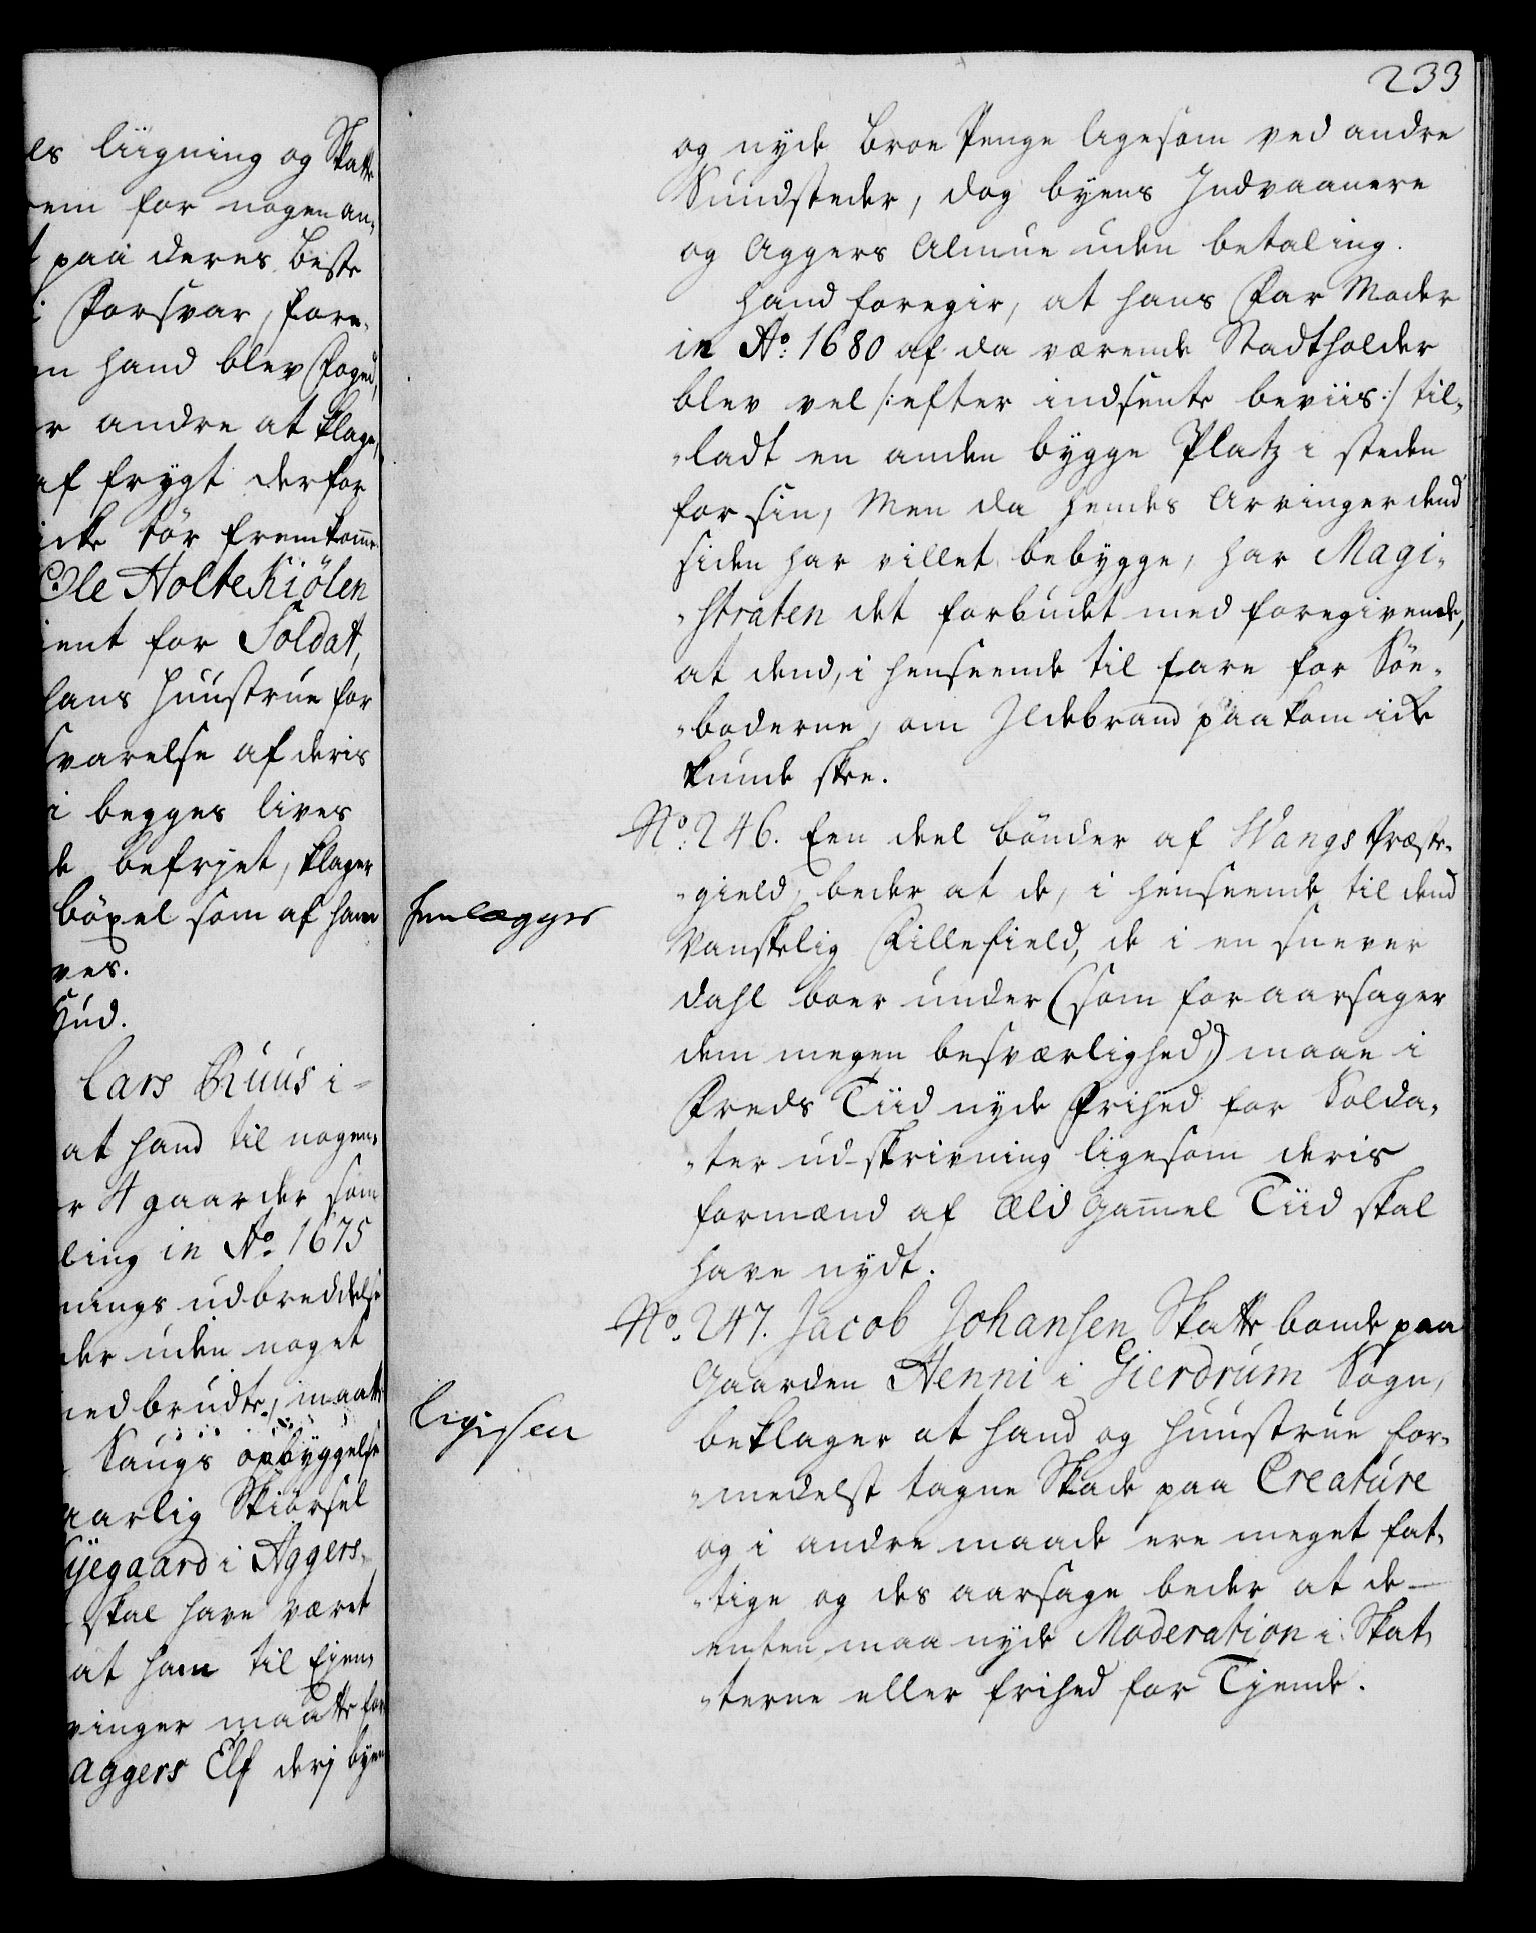 es liigning og Skatte
em for nogen an-
t paa deres beste
i Forsvar, fore-
n hand blev Foged,
r andre at klage,
af frygt derfor
icke tör fremkomme
Ole Holte Kiölen
ient for Soldat,
hans Huustrue for
svarelse af deris
i begges lives
de befrjet, klager
böxel som af ham
ves.
Hud.
Lars Ruus i
at hand til nogen
r 4 gaarder som
ling in Ao 1675
nings udbreddelse
der uden noget
nedbrudte, maatte
Saugs opbÿggelse
aarlig Skiörsel
ÿegaard i Aggers
skal have været
at ham til Ejen-
vinger maatte for
Aggers Elf derj byen
233
og nyde broe Penge ligesom ved andre
Sundsteder, dog byens Indvaanere
og Aggers Almue uden betaling.
Hand foregir, at hans Far Moder
in Ao: 1680 af da værende Stadtholder
blev vel /: efter indsente beviis :/ til-
-ladt en anden bygge Platz i steden
for sin, Men da hendes Arvinger dend
siden har villet bebygge, har Magi-
-straten det forbudet med foregivende,
at dend, i henseende til fare for Söe-
-boderne, om Ildebrand paakom icke
kunde skee.
No: 246. Een deel bönder af Wangs Præste-
-gield, beder at de, i henseende til dend
Vanskelig Fillefield, de i en snever
dahl boer under (som for aarsager
dem megen besværlighed,) maae i
Freds Tiid nyde Frihed for Solda-
-ter ud-skrivning ligesom deris
formænd af Æld gammel Tiid skal
have nydt.
henlægges
No. 247. Jacob Johansen Skatte bonde paa
Gaarden Henni i Gierdrum Sogn,
beklager at hand og huustrue for-
-medelst tagne Skade paa Creature
og i andre maade ere meget fat-
-tige og des aarsage beder at de
enten maa nyde Moderation i Skat-
-terne eller frihed for Tjende.
ligesaa